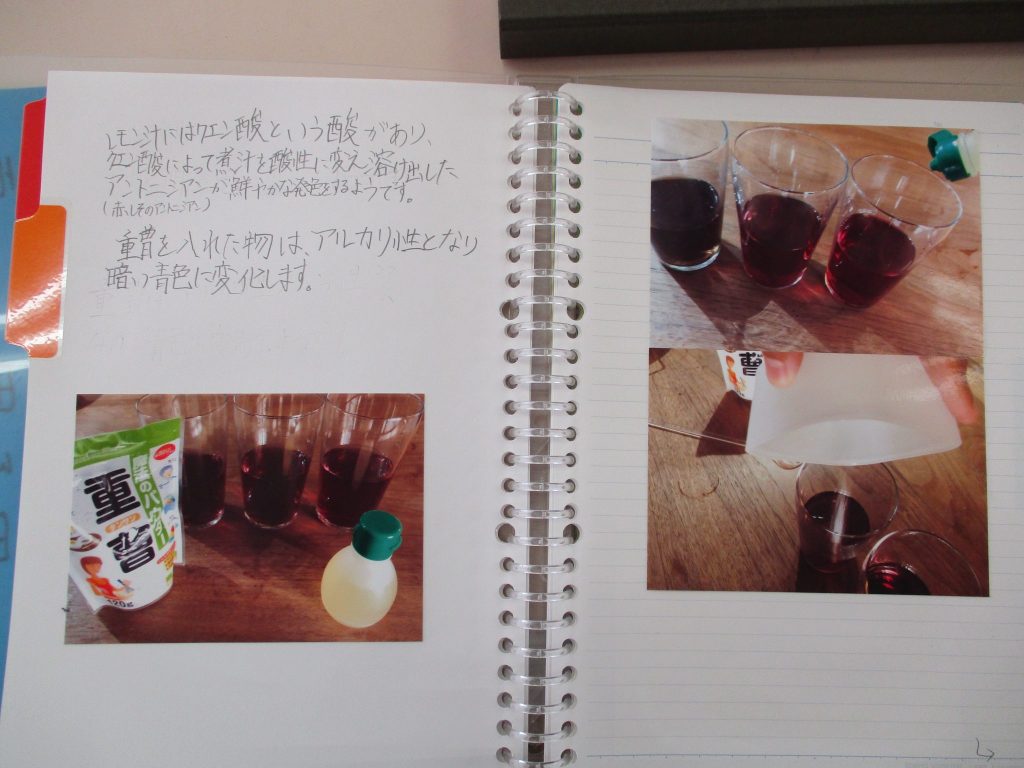 レモン汁にはクエン酸という酸があり、
クエン酸によって煮汁を酸性に変え溶け出した
アントニシアンが鮮やかな発色をするようです。
(赤しそのアントニシアン)
重曹を入れた物は、アルカリ性となり
暗い青色に変化します。
重曹
120g